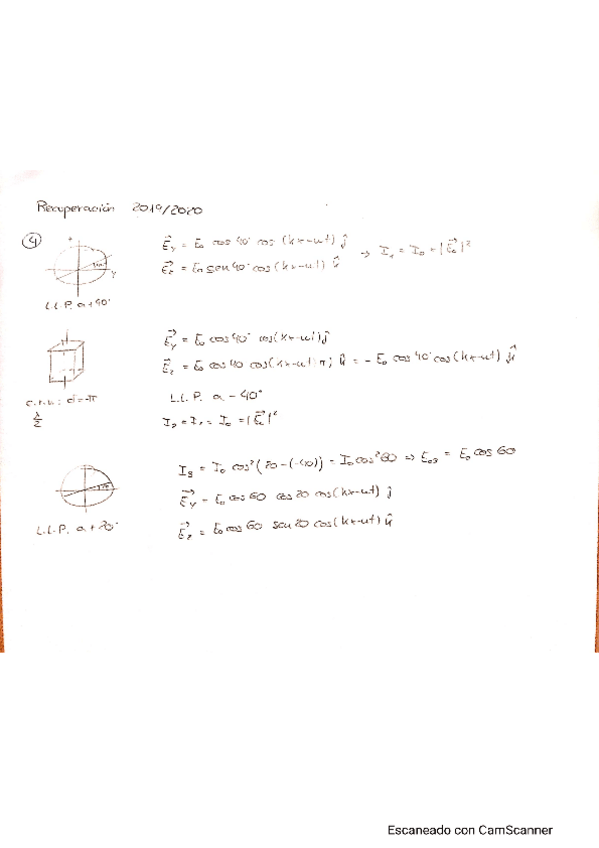 Recuperación 2019/2020
4
E⃗y = E₀ cos 40° cos (kx-ωt) ĵ
E⃗z = E₀ sen 40° cos (kx-ωt) k̂
→ I₁ = I₀ = |E⃗₀|²
y
L.L.P. a +40°
E⃗y = E₀ cos 40° cos(kx-ωt) ĵ
E⃗z = E₀ cos 40 cos(kx-ωt-π) k̂ = - E₀ cos 40° cos(kx-ωt) k̂
δ=-π
L.L.P. a - 40°
λ/2
I₂ = I₁ = I₀ = |E⃗₀|²
I₃ = I₀ cos² (20-(-40)) = I₀ cos² 60 ⇒ E₀₃ = E₀ cos 60
E⃗y = E₀ cos 60 cos 20 cos(kx-ωt) ĵ
L.L.P. a +20°
E⃗z = E₀ cos 60 sen 20 cos(kx-ωt) k̂
Escaneado con CamScanner